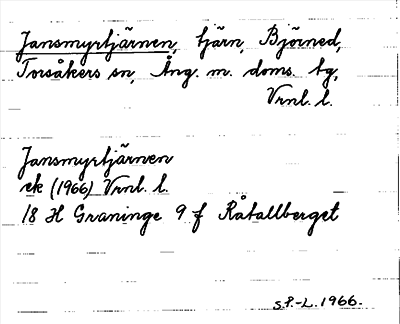 Jansmyrtjärnen, tjärn, Björned,
Torsåkers sn, Ång. m. doms. tg,
Vrnl. l.
Jansmyrtjärnen
ek (1966) Vrnl. l.
18 H Graninge 9 f Råtallberget
S.P.-L. 1966.